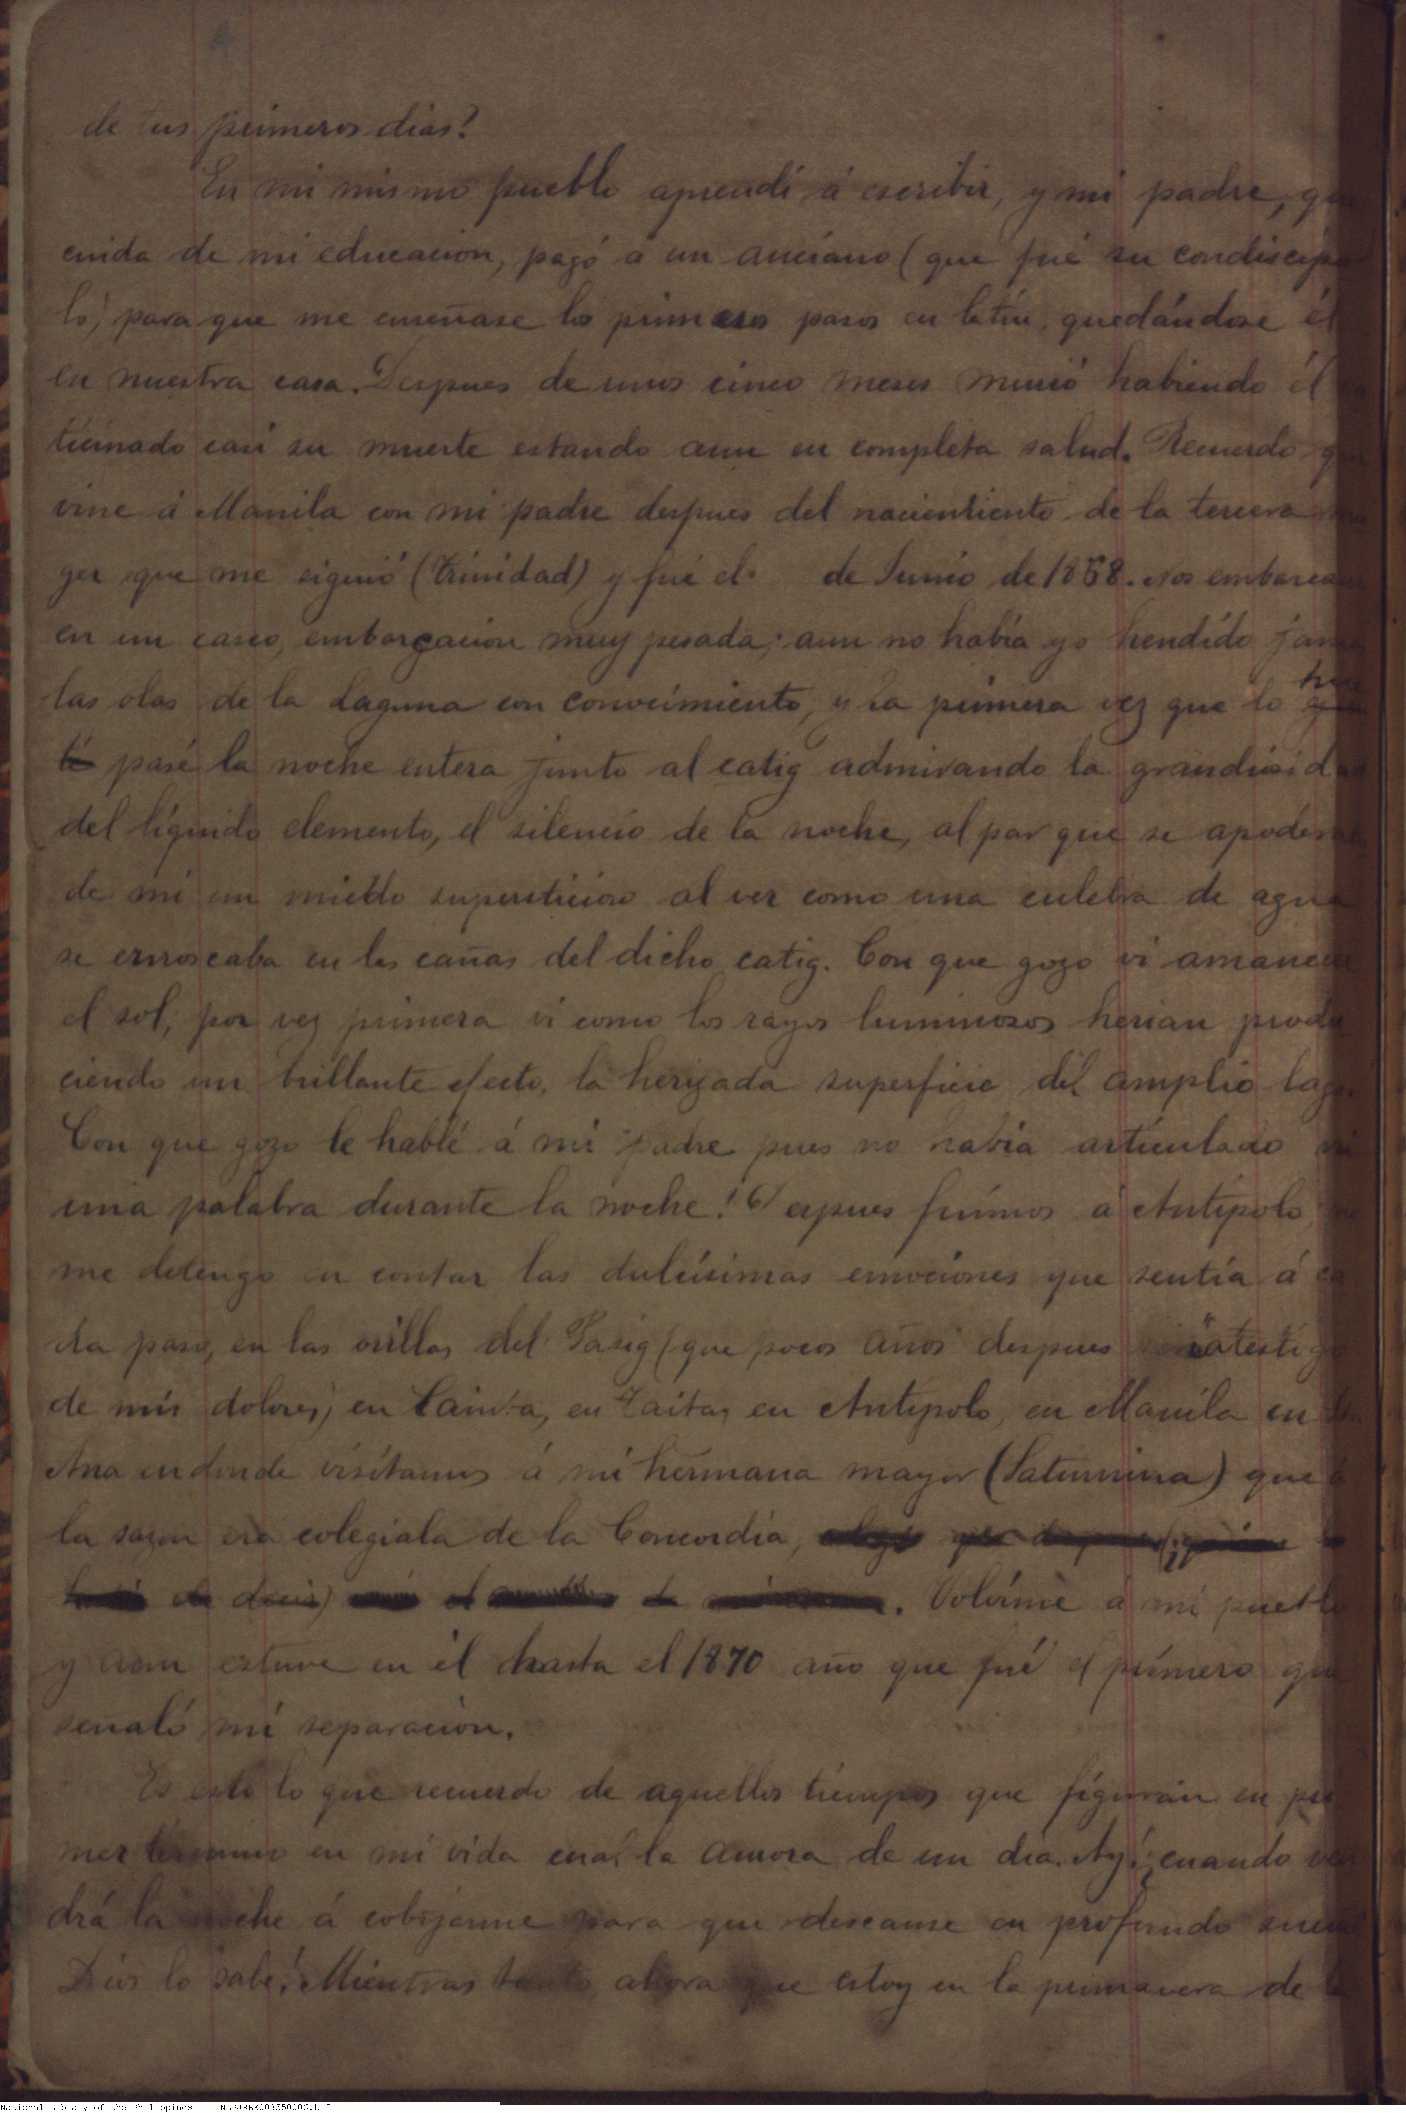 de tus primeros dias?
En mi mismo pueblo aprendí á escribir, y mi padre, que
cuida de mi educacion, pagó á un anciano (que fué su condiscípu
lo) para que me enseñase los primeros pasos en latin, quedándose él
en nuestra casa. Despues de unos cinco meses murió habiendo él
ticinado casi su muerte estando aun en completa salud. Recuerdo que
vine á Manila con mi padre despues del nacientiento de la tercera
ger que me siguió (Trinidad) y fué el de Junio de 1868. Nos embarca
en un casco, embarcacion muy pesada; aun no habia yo hendido jam
las olas de la Laguna con conocimiento, y la primera vez que lo
pasé la noche entera junto al catig admirando la grandiosid
del líquido elemento, el silencio de la noche, al par que se apodera
de mi un miedo supersticioso al ver como una culebra de agua
se enroscaba en las cañas del dicho catig. Con que gozo vi amanecer
el sol; por vez primera vi como los rayos luminosos herian produ
ciendo un brillante efecto, la herizada superficie del amplio lago.
Con que gozo le hablé á mi padre pues no habia articulado ni
una palabra durante la noche! Despues fuimos á Antipolo
me detengo en contar las dulcísimas emociones que sentia á ca
da paso, en las orillas del Pasig (que pocos años despues testigo
de mis dolores) en Cainta, en Taitay en Antipolo, en Manila en
Ana en donde visitamos á mi hermana mayor (Saturnina) que á
la sazon era colegiala de la Concordia,
de decir) el de . Volvime á mi pueblo
y aun estuve en él hasta el 1870 año que fué el primero que
señaló mi separacion.
Es esto lo que recuerdo de aquellos tiempos que figuran en pri
mer término en mi vida cual la aurora de un dia. Ay! ¿cuando ven
drá la noche á cobijarme para que descanse en profundo sueño
Dios lo sabe! Mientras tanto ahora que estoy en la primavera de la